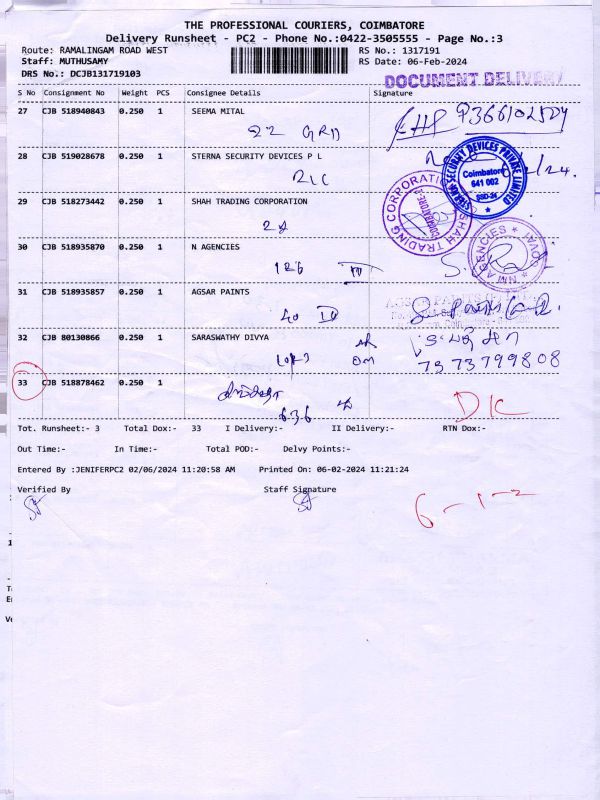 THE PROFESSIONAL COURIERS, COIMBATORE
Delivery Runsheet - PC2 - Phone No.:0422-3505555 - Page No.:3
Route: RAMALINGAM ROAD WEST RS No.: 1317191
Staff: MUTHUSAMY RS Date: 06-Feb-2024
DRS No.: DCJB131719103
DOCUMENT DELIVERY
S No Consignment No Weight PCS Consignee Details Signature
27 CJB 518940843 0.250 1 SEEMA MITAL
28 CJB 519028678 0.250 1 STERNA SECURITY DEVICES P L
Coimbatore
641 002
29 CJB 518273442 0.250 1 SHAH TRADING CORPORATION
SHAH TRADING CORPORATION
30 CJB 518935870 0.250 1 N AGENCIES
126 III
31 CJB 518935857 0.250 1 AGSAR PAINTS
40 IV
32 CJB 80130866 0.250 1 SARASWATHY DIVYA
7373799808
33 CJB 518878462 0.250 1
636
D/C
Tot. Runsheet:- 3 Total Dox:- 33 I Delivery:- II Delivery:- RTN Dox:-
Out Time:- In Time:- Total POD:- Delvy Points:-
Entered By :JENIFERPC2 02/06/2024 11:20:58 AM Printed On: 06-02-2024 11:21:24
Verified By Staff Signature
6-1-2